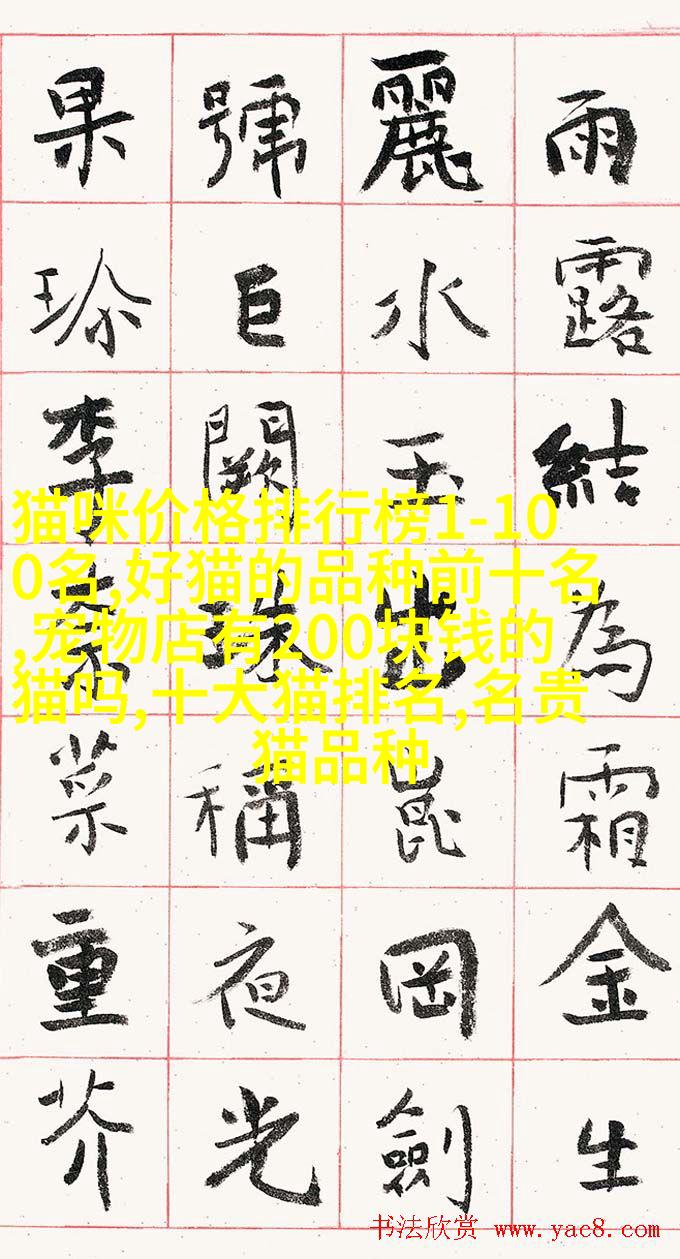 雨露結為霜金生
麗水玉出崑岡劍
號巨闕珠稱夜光
果珎李柰菜重芥
猫咪价格排行榜1-10
0名,好猫的品种前十名
,宠物店有200块钱的
猫吗,十大猫排名,名贵
猫品种
书法欣赏 www.yac8.com